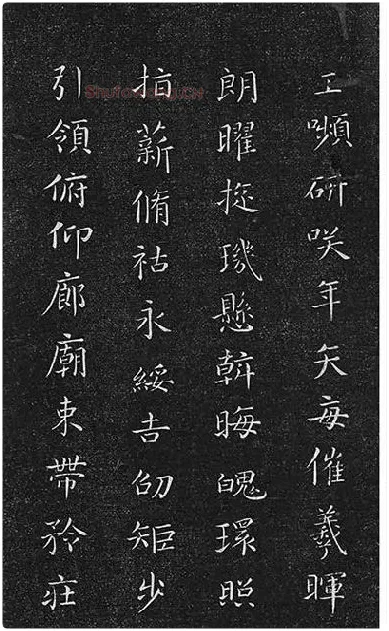 工嚬研咲年矢每催羲暉
朗曜琁璣懸斡晦魄環照
指薪脩祜永綏吉劭矩步
引領俯仰廊廟束帶矜莊